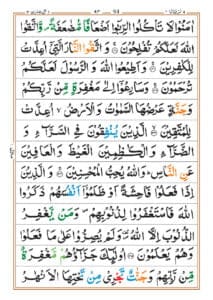 اٰمَنُوْا لَا تَاْكُلُوا الرِّبٰٓوا اَضْعَافًا مُّضٰعَفَةً وَّاتَّقُوا
اللّٰهَ لَعَلَّكُمْ تُفْلِحُوْنَ وَاتَّقُوا النَّارَ الَّتِيْٓ اُعِدَّتْ
لِلْكٰفِرِيْنَ وَاَطِيْعُوا اللّٰهَ وَالرَّسُوْلَ لَعَلَّكُمْ
تُرْحَمُوْنَ وَسَارِعُوْٓا اِلٰى مَغْفِرَةٍ مِّنْ رَّبِّكُمْ
وَجَنَّةٍ عَرْضُهَا السَّمٰوٰتُ وَالْاَرْضُ اُعِدَّتْ
لِلْمُتَّقِيْنَ الَّذِيْنَ يُنْفِقُوْنَ فِي السَّرَّآءِ وَ
الضَّرَّآءِ وَالْكٰظِمِيْنَ الْغَيْظَ وَالْعَافِيْنَ
عَنِ النَّاسِ وَاللّٰهُ يُحِبُّ الْمُحْسِنِيْنَ وَالَّذِيْنَ
اِذَا فَعَلُوْا فَاحِشَةً اَوْ ظَلَمُوْٓا اَنْفُسَهُمْ ذَكَرُوا
اللّٰهَ فَاسْتَغْفَرُوْا لِذُنُوْبِهِمْ وَمَنْ يَّغْفِرُ
الذُّنُوْبَ اِلَّا اللّٰهُ وَلَمْ يُصِرُّوْا عَلٰى مَا فَعَلُوْا
وَهُمْ يَعْلَمُوْنَ اُولٰٓئِكَ جَزَآؤُهُمْ مَّغْفِرَةٌ
مِّنْ رَّبِّهِمْ وَجَنّٰتٌ تَجْرِيْ مِنْ تَحْتِهَا الْاَنْهٰرُ